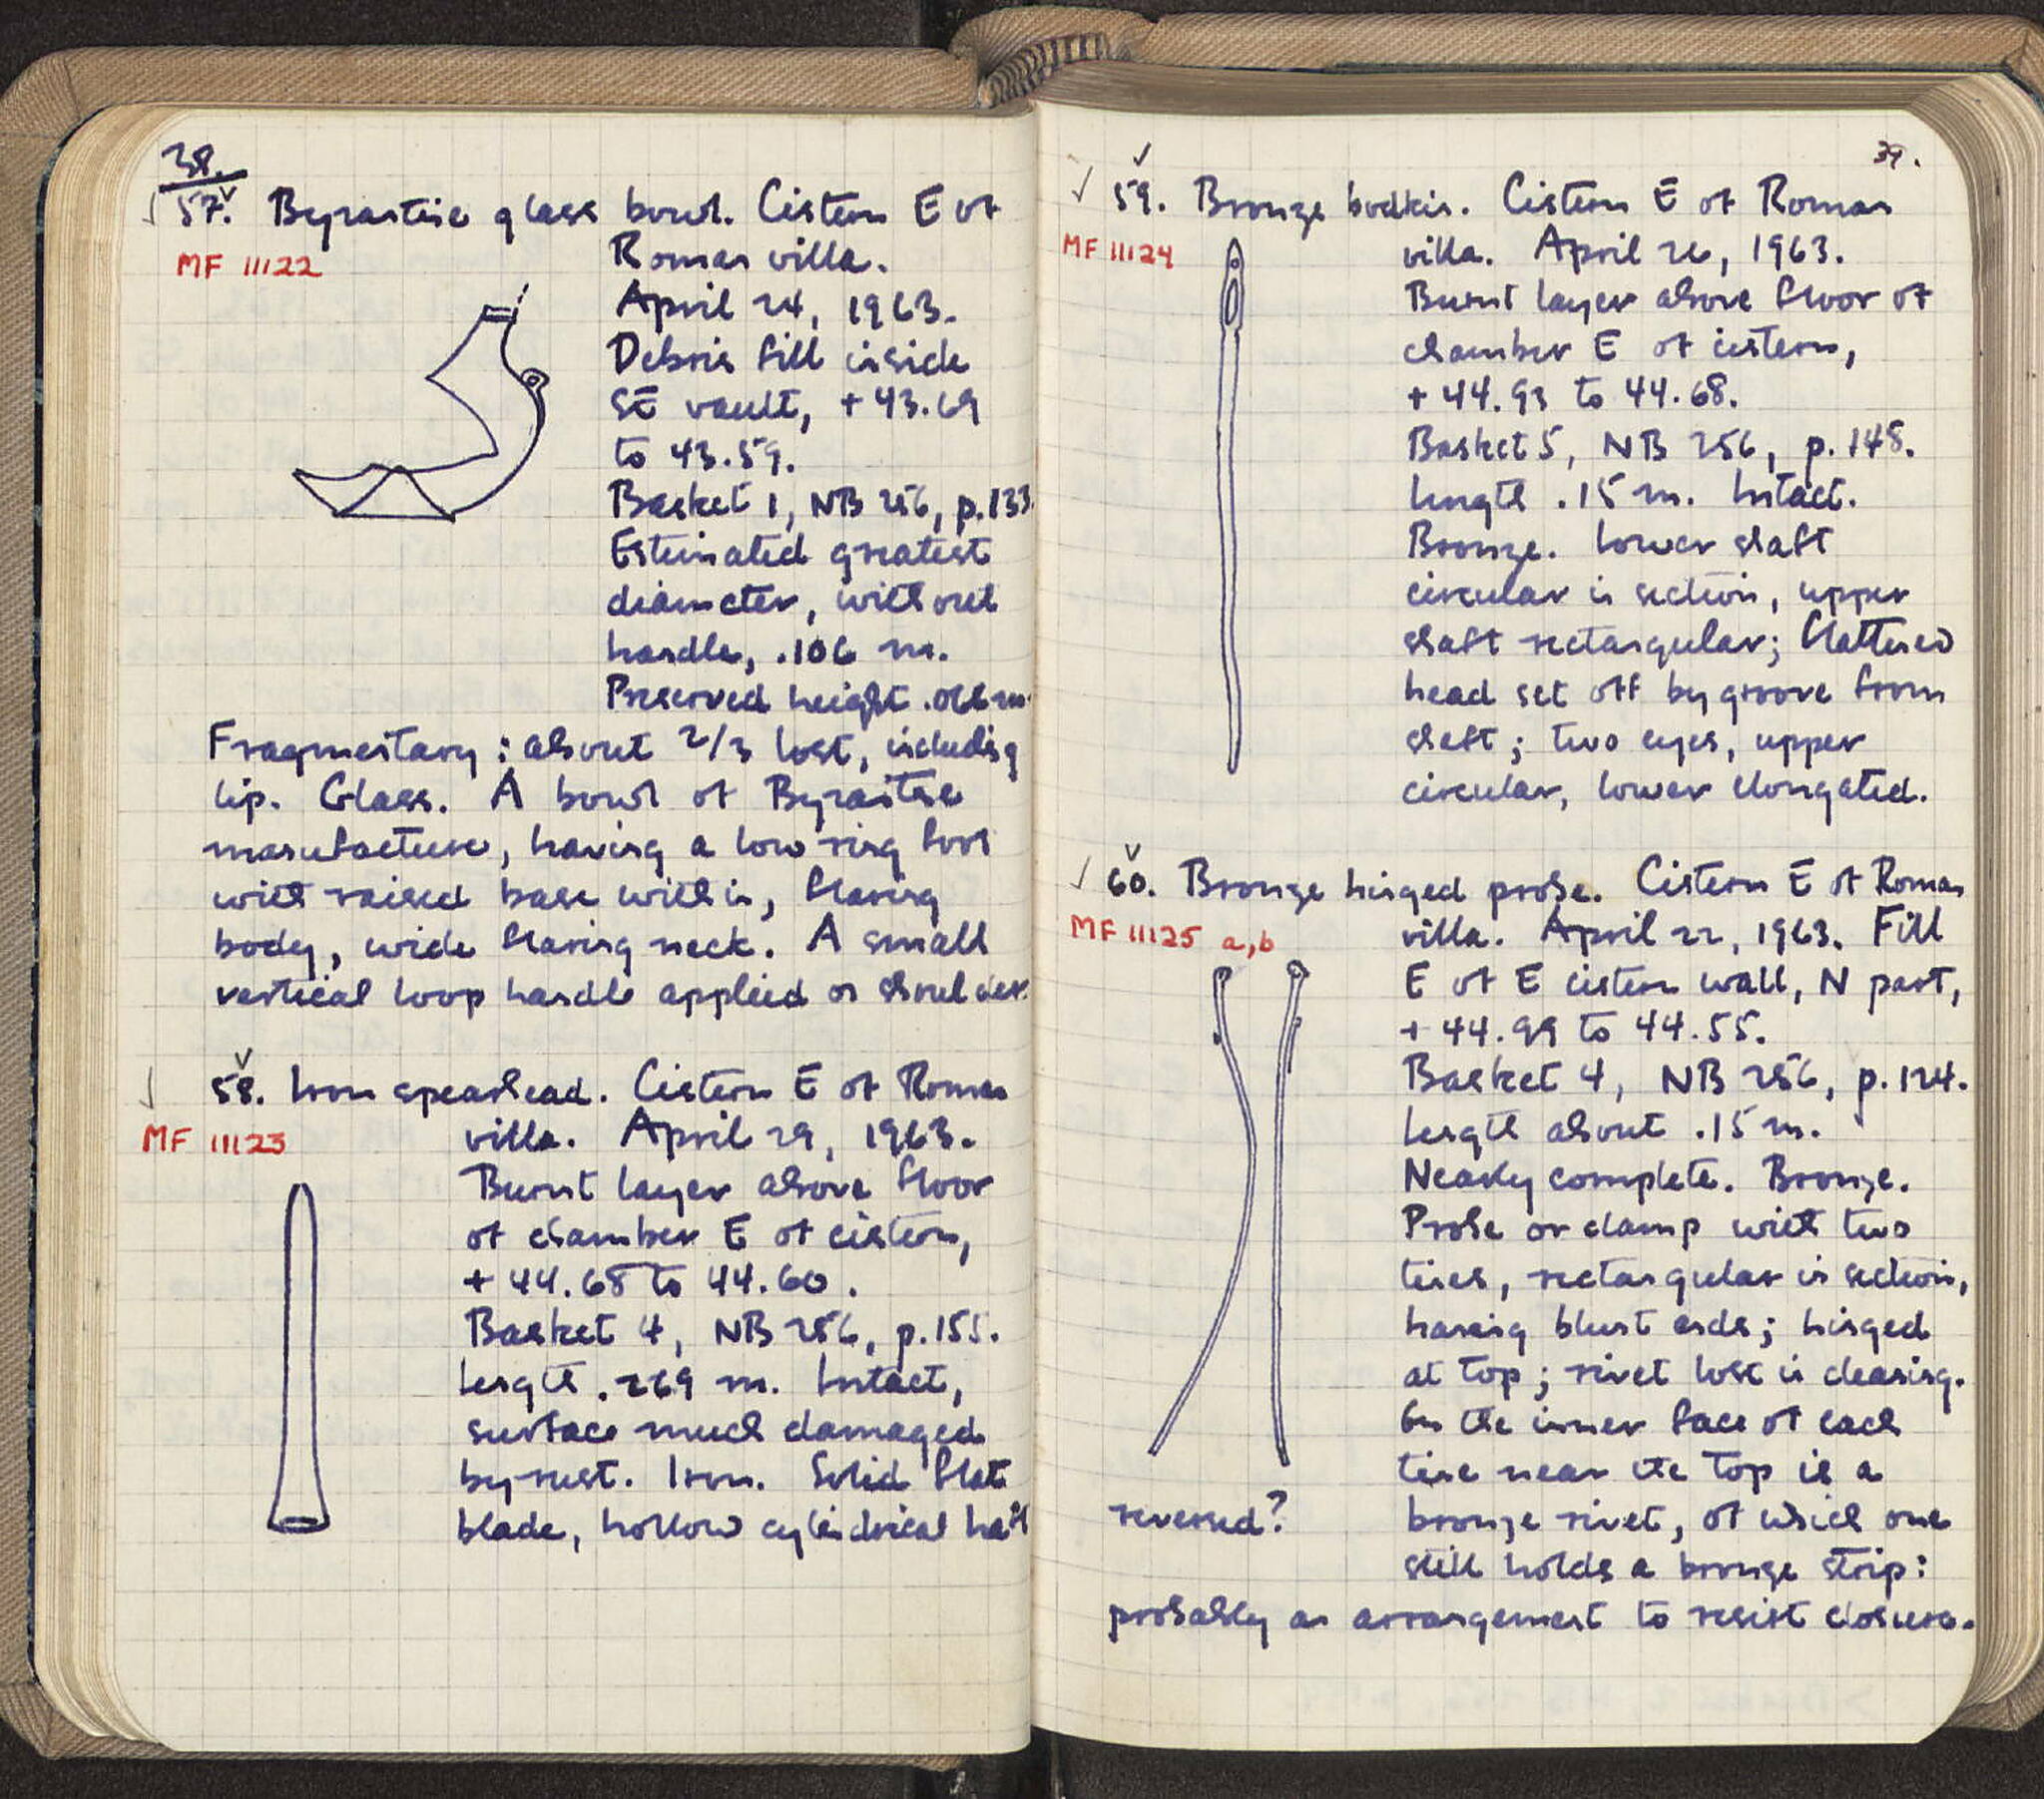 38.
57. Byzantine glass bowl. Cistern E of
MF 11122
Roman villa.
April 24, 1963.
Debris fill inside
SE vault, +43.69
to 43.59.
Basket 1, NB 256, p.133.
Estimated greatest
diameter, without
handle, .106 m.
Preserved height .066 m.
Fragmentary: about 2/3 lost, including
lip. Glass. A bowl of Byzantine
manufacture, having a low ring foot
with raised base within, flaring
body, wide flaring neck. A small
vertical loop handle applied on shoulder.
58. Iron spearhead. Cistern E of Roman
MF 11123
villa. April 29, 1963.
Burnt layer above floor
of chamber E of cistern,
+ 44.68 to 44.60.
Basket 4, NB 256, p.155.
Length .269 m. Intact,
surface much damaged
by rust. Iron. Solid flat
blade, hollow cylindrical haft
39.
59. Bronze bodkin. Cistern E of Roman
MF 11124
villa. April 26, 1963.
Burnt layer above floor of
chamber E of cistern,
+ 44.93 to 44.68.
Basket 5, NB 256, p.148.
Length .15 m. Intact.
Bronze. Lower shaft
circular in section, upper
shaft rectangular; flattened
head set off by groove from
shaft; two eyes, upper
circular, lower elongated.
60. Bronze hinged probe. Cistern E of Roman
MF 11125 a,b
villa. April 22, 1963. Fill
E of E cistern wall, N part,
+ 44.99 to 44.55.
Basket 4, NB 256, p.124.
Length about .15 m.
Nearly complete. Bronze.
Probe or clamp with two
tines, rectangular in section,
having blunt ends; hinged
at top; rivet lost in cleaning.
On the inner face of each
tine near the top is a
reversed?
bronze rivet, of which one
still holds a bronze strip:
probably an arrangement to resist closure.